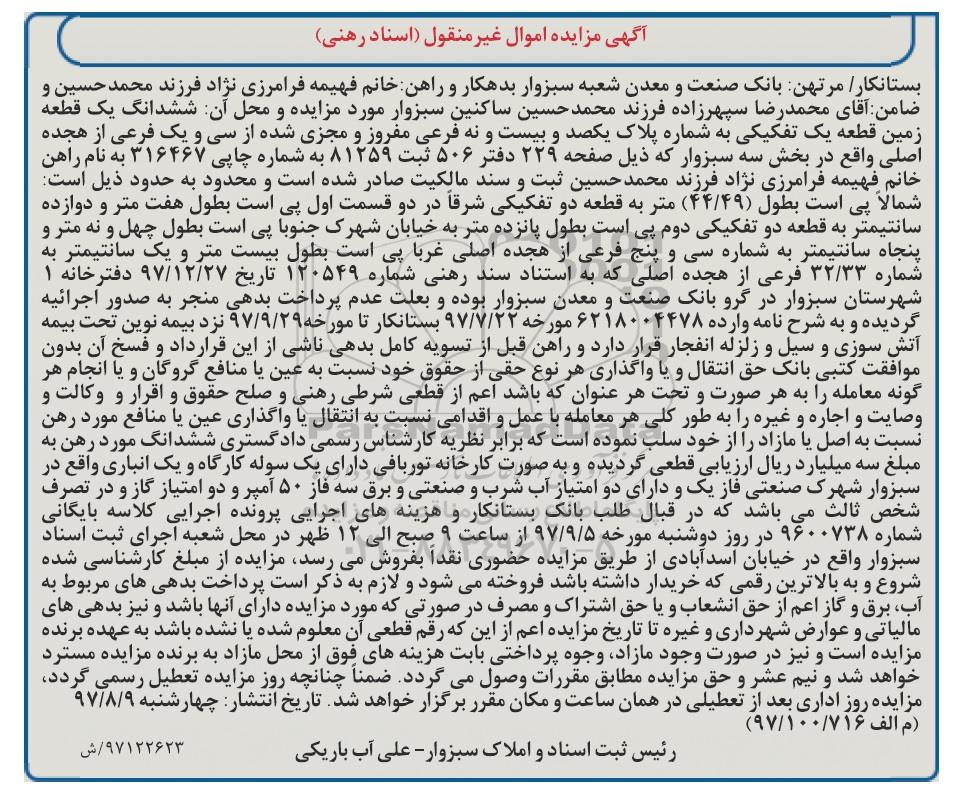 آگهی مزایده اموال غیرمنقول (اسناد رهنی)
بستانکار/ مرتهن: بانک صنعت و معدن شعبه سبزوار بدهکار و راهن:خانم فهیمه فرامرزی نژاد فرزند محمدحسین و
ضامن:آقای محمدرضا سپهرزاده فرزند محمدحسین ساکنین سبزوار مورد مزایده و محل آن: ششدانگ یک قطعه
زمین قطعه یک تفکیکی به شماره پلاک یکصد و بیست و نه فرعی مفروز و مجزی شده از سی و یک فرعی از هجده
اصلی واقع در بخش سه سبزوار که ذیل صفحه ۲۲۹ دفتر ۵۰۶ ثبت ۸۱۲۵۹ به شماره چاپی ۳۱۶۴۶۷ به نام راهن
خانم فهیمه فرامرزی نژاد فرزند محمدحسین ثبت و سند مالکیت صادر شده است و محدود به حدود ذیل است:
شمالاً پی است بطول (۴۴/۴۹) متر به قطعه دو تفکیکی شرقاً در دو قسمت اول پی است بطول هفت متر و دوازده
سانتیمتر به قطعه دو تفکیکی دوم پی است بطول پانزده متر به خیابان شهرک جنوبا پی است بطول چهل و نه متر و
پنجاه سانتیمتر به شماره سی و پنج فرعی از هجده اصلی غربا پی است بطول بیست متر و یک سانتیمتر به
شماره ۳۲/۳۳ فرعی از هجده اصلی که به استناد سند رهنی شماره ۱۲۰۵۴۹ تاریخ ۹۷/۱۲/۲۷ دفترخانه ۱
شهرستان سبزوار در گرو بانک صنعت و معدن سبزوار بوده و بعلت عدم پرداخت بدهی منجر به صدور اجرائیه
گردیده و به شرح نامه وارده ۶۲۱۸۰۰۴۴۷۸ مورخه ۹۷/۷/۲۲ بستانکار تا مورخه۹۷/۹/۲۹ نزد بیمه نوین تحت بیمه
آتش سوزی و سیل و زلزله انفجار قرار دارد و راهن قبل از تسویه کامل بدهی ناشی از این قرارداد و فسخ آن بدون
موافقت کتبی بانک حق انتقال و یا واگذاری هر نوع حقی از حقوق خود نسبت به عین یا منافع گروگان و یا انجام هر
گونه معامله را به هر صورت و تحت هر عنوان که باشد اعم از قطعی شرطی رهنی و صلح حقوق و اقرار و وکالت و
وصایت و اجاره و غیره را به طور کلی هر معامله یا عمل و اقدامی نسبت به انتقال یا واگذاری عین یا منافع مورد رهن
نسبت به اصل یا مازاد را از خود سلب نموده است که برابر نظریه کارشناس رسمی دادگستری ششدانگ مورد رهن به
مبلغ سه میلیارد ریال ارزیابی قطعی گردیده و به صورت کارخانه توربافی دارای یک سوله کارگاه و یک انباری واقع در
سبزوار شهرک صنعتی فاز یک و دارای دو امتیاز آب شرب و صنعتی و برق سه فاز ۵۰ آمپر و دو امتیاز گاز و در تصرف
شخص ثالث می باشد که در قبال طلب بانک بستانکار و هزینه های اجرایی پرونده اجرایی کلاسه بایگانی
شماره ۹۶۰۰۷۳۸ در روز دوشنبه مورخه ۹۷/۹/۵ از ساعت ۹ صبح الی ۱۲ ظهر در محل شعبه اجرای ثبت اسناد
سبزوار واقع در خیابان اسدآبادی از طریق مزایده حضوری نقدا بفروش می رسد، مزایده از مبلغ کارشناسی شده
شروع و به بالاترین رقمی که خریدار داشته باشد فروخته می شود و لازم به ذکر است پرداخت بدهی های مربوط به
آب، برق و گاز اعم از حق انشعاب و یا حق اشتراک و مصرف در صورتی که مورد مزایده دارای آنها باشد و نیز بدهی های
مالیاتی و عوارض شهرداری و غیره تا تاریخ مزایده اعم از این که رقم قطعی آن معلوم شده یا نشده باشد به عهده برنده
مزایده است و نیز در صورت وجود مازاد، وجوه پرداختی بابت هزینه های فوق از محل مازاد به برنده مزایده مسترد
خواهد شد و نیم عشر و حق مزایده مطابق مقررات وصول می گردد. ضمناً چنانچه روز مزایده تعطیل رسمی گردد،
مزایده روز اداری بعد از تعطیلی در همان ساعت و مکان مقرر برگزار خواهد شد. تاریخ انتشار: چهارشنبه ۹۷/۸/۹
(م الف ۹۷/۱۰۰/۷۱۶)
رئیس ثبت اسناد و املاک سبزوار- علی آب باریکی
۹۷۱۲۲۶۲۳/ش
ParsNamadData